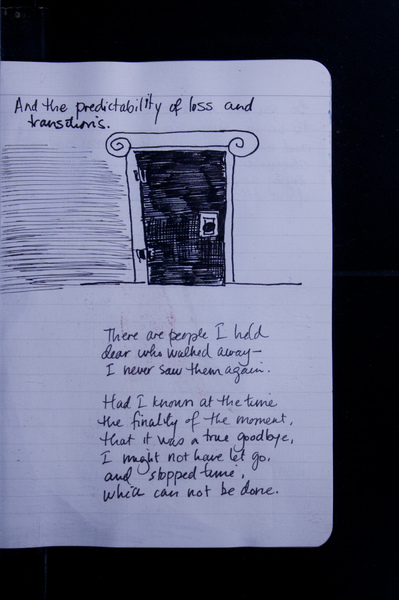 And the predictability of loss and
transitions.
There are people I hold
dear who walked away—
I never saw them again.
Had I known at the time
the finality of the moment,
that it was a true goodbye,
I might not have let go,
and stopped time,
which can not be done.